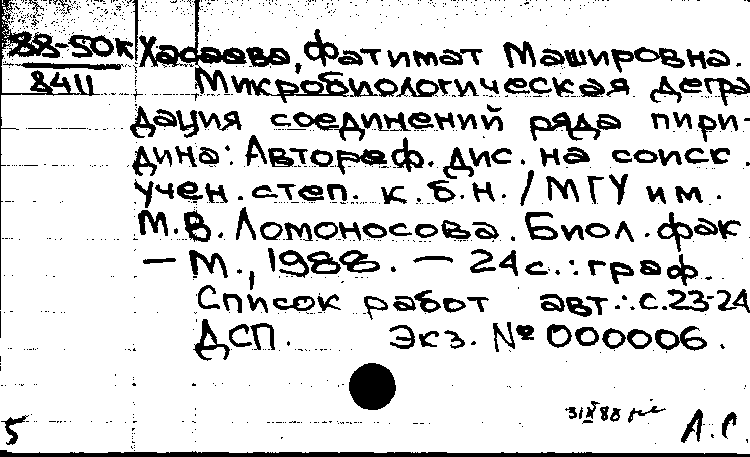 88-50к Хасаева, Фатимат Машировна.
8411 Микробиологическая дегра
дация соединений ряда пири-
дина: Автореф. дис. на соиск.
учен. степ. к.б.н. / МГУ им.
М.В. Ломоносова. Биол. фак
— М., 1988. — 24 с.: граф.
Список работ авт.: с. 23-24
ДСП. Экз. № 000006.
5 А.С.